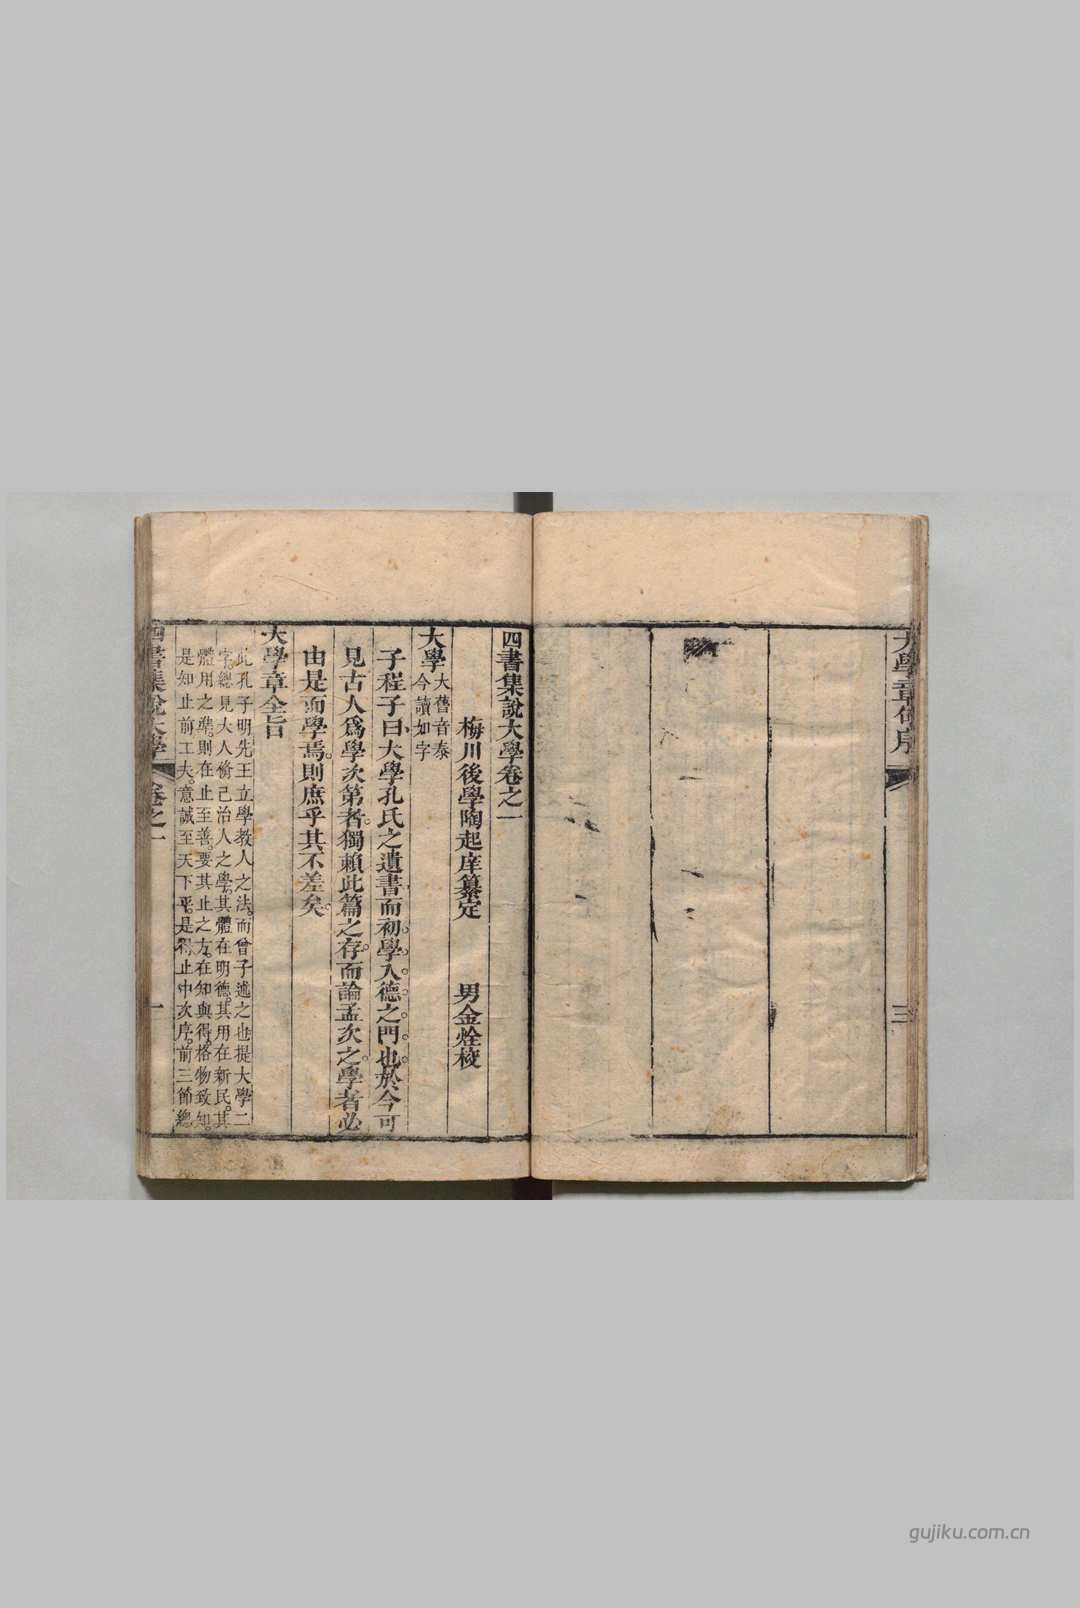 大學章句序
三
四書集說大學卷之一
梅川後學陶起庠纂定　男金烇校
大學大舊音泰
今讀如字
子程子曰大學孔氏之遺書而初學入德之門也於今可
見古人爲學次第者獨賴此篇之存而論孟次之學者必
由是而學焉則庶乎其不差矣
大學章全旨
此孔子明先王立學教人之法而曾子述之也提大學二
字總見大人脩己治人之學其體在明德其用在新民其
體用之準則在止至善要其止之方在知與得格物致知
是知止前工夫意誠至天下平是得止中次序前三節總
四書集說大學
卷之一
一
gujiku.com.cn